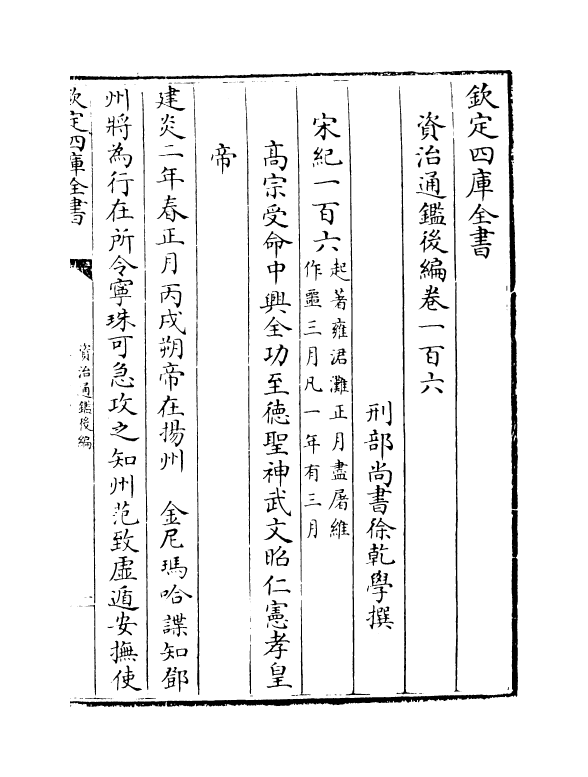 欽定四庫全書
資治通鑑後編卷一百六
刑部尚書徐乾學撰
宋紀一百六起著雍涒灘正月盡屠維
作噩三月凡一年有三月
高宗受命中興全功至德聖神武文昭仁憲孝皇
帝
建炎二年春正月丙戌朔帝在揚州　金尼瑪哈諜知鄧
州將為行在所令寧珠可急攻之知州范致虛遁安撫使
欽定四庫全書
資治通鑑後編
一